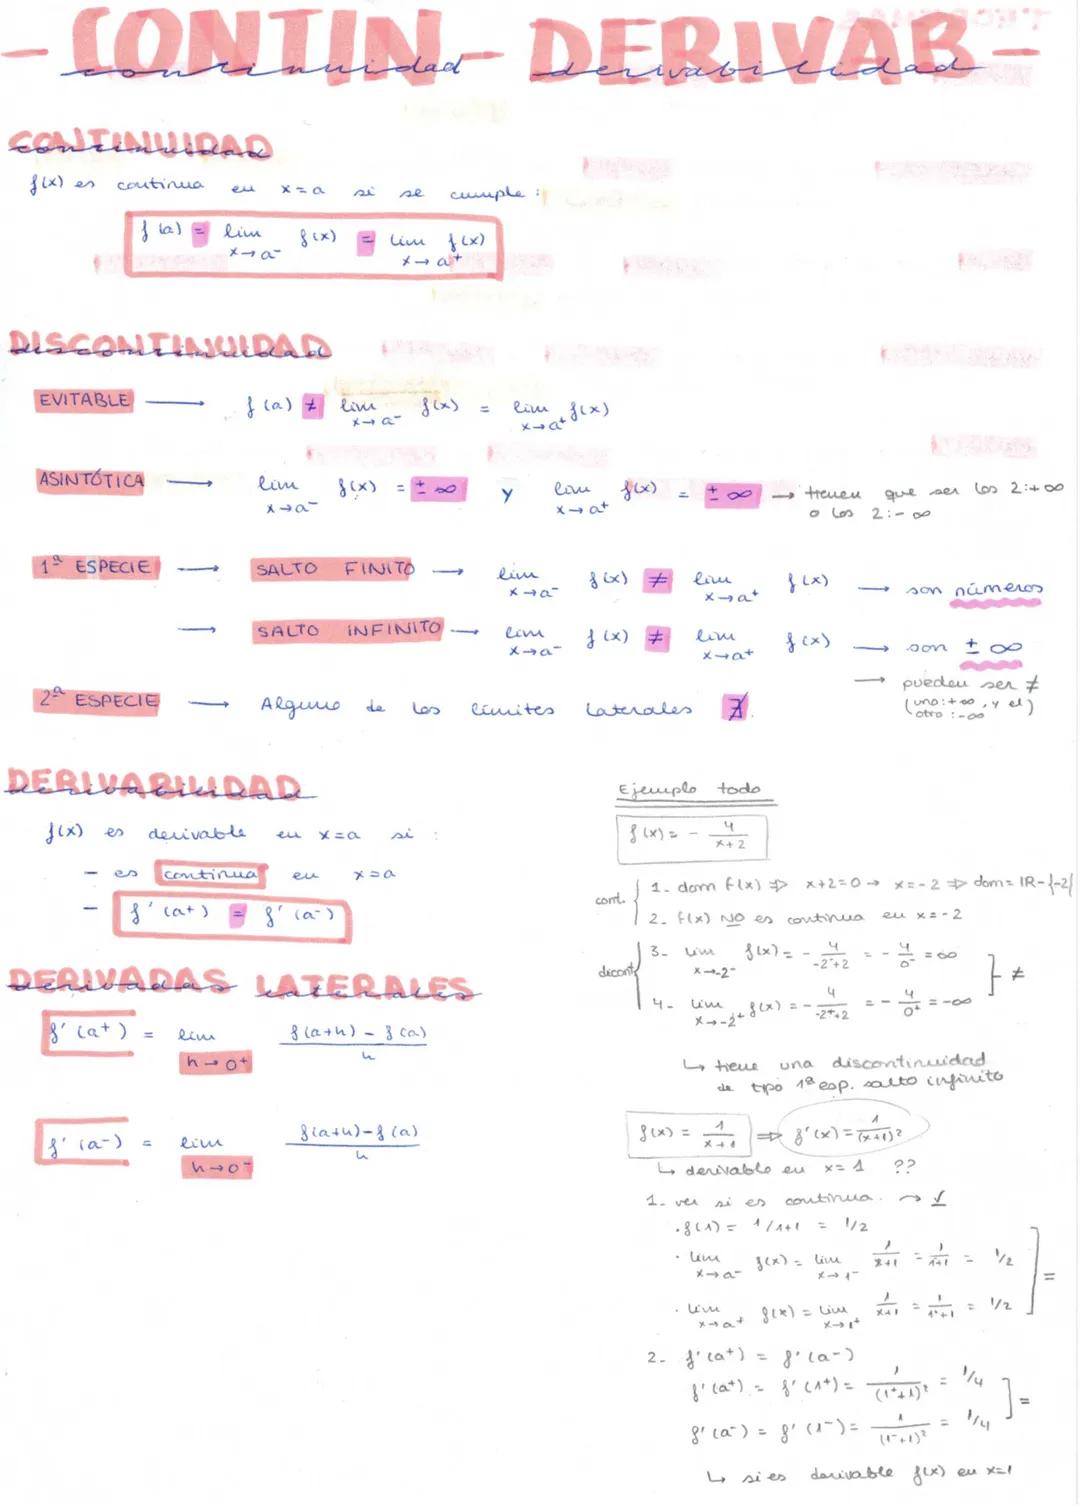 - CONTIN - DERIVAB -
continuidad derivabilidad
CONTINUIDAD
continuidad
f(x) es continua en x=a si se cumple:
f(a) = lim x→a⁻ f(x) = lim x→a⁺ f(x)
DISCONTINUIDAD
discontinuidad
EVITABLE → f(a) ≠ lim x→a⁻ f(x) = lim x→a⁺ f(x)
ASINTÓTICA → lim x→a⁻ f(x) = ±∞ y lim x→a⁺ f(x) = ±∞ → tienen que ser los 2:+∞
o los 2:-∞
1ª ESPECIE → SALTO FINITO → lim x→a⁻ f(x) ≠ lim x→a⁺ f(x) → son números
→ SALTO INFINITO → lim x→a⁻ f(x) ≠ lim x→a⁺ f(x) → son ±∞
→ pueden ser ≠
(uno:+∞, y el
otro:-∞)
2ª ESPECIE → Alguno de los límites laterales ∄.
DERIVABILIDAD
derivabilidad
f(x) es derivable en x=a si :
- es continua en x=a
- f'(a⁺) = f'(a⁻)
DERIVADAS LATERALES
derivadas laterales
f'(a⁺) = lim h→0⁺ f(a+h)-f(a) / h
f'(a-) = lim h→0⁻ f(a+h)-f(a) / h
Ejemplo todo
f(x) = - 4/x+2
cont. { 1- dom f(x) ⇒ x+2=0 → x=-2 ⇒ dom= IR-{-2}
2- f(x) NO es continua en x=-2
discont { 3- lim x→-2⁻ f(x) = - 4/-2⁻+2 = - 4/0⁻ = ∞
4- lim x→-2⁺ f(x) = - 4/-2⁺+2 = - 4/0⁺ = -∞ } ≠
↳ tiene una discontinuidad
de tipo 1ª esp. salto infinito
f(x) = 1/x+1 ⇒ f'(x) = 1/(x+1)²
↳ derivable en x=1 ??
1- ver si es continua. → ✓
·f(1) = 1/1+1 = 1/2
· lim x→a⁻ f(x) = lim x→1⁻ 1/x+1 = 1/1+1 = 1/2
· lim x→a⁺ f(x) = lim x→1⁺ 1/x+1 = 1/1⁺+1 = 1/2 ] =
2- f'(a⁺) = f'(a-)
f'(a⁺) = f'(1⁺) = 1/(1⁺+1)² = 1/4
f'(a⁻) = f'(1⁻) = 1/(1⁻+1)² = 1/4 ] =
↳ si es derivable f(x) en x=1